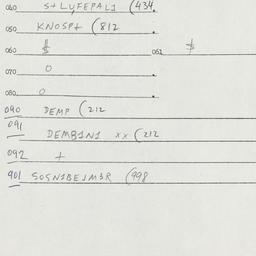 040 S+LYFEPAL1 (434.
050 KNOSP+ (812
060 $ 061 $
070 0
080 0
090 DEMP (212
091 DEMB1N1 xx (212
092 +
901 SOSN1BEJM3R (998